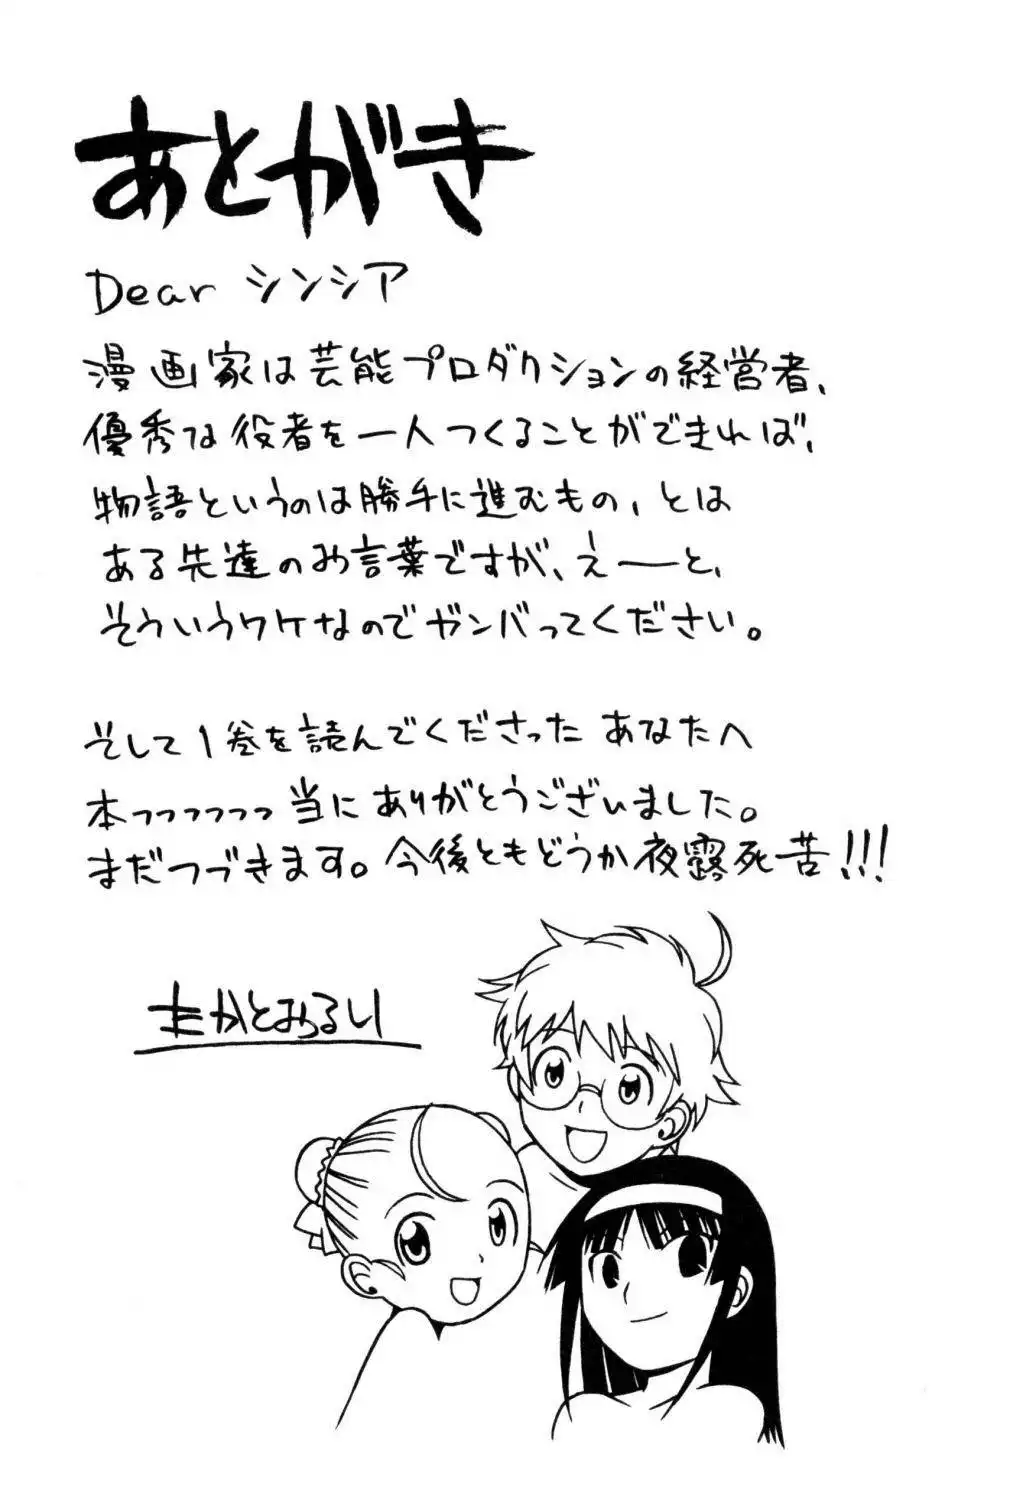 あとがき
Dear シンシア
漫画家は芸能プロダクションの経営者、
優秀な役者を一人つくることができれば、
物語というのは勝手に進むもの、とは
ある先達のお言葉ですが、えーと、
そういうワケなのでガンバってください。
そして1巻を読んでくださった あなたへ
本っっっっっっ当に ありがとうございました。
まだつづきます。今後ともどうか夜露死苦!!!
たかとみるい